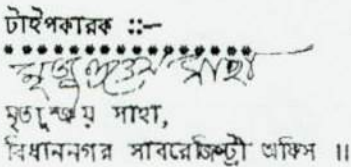 টাইপকারক ::—
মৃত্যুঞ্জয় সাহা
মৃত্যুঞ্জয় সাহা,
বিধাননগর সাবরেজিস্ট্রী অফিস ॥